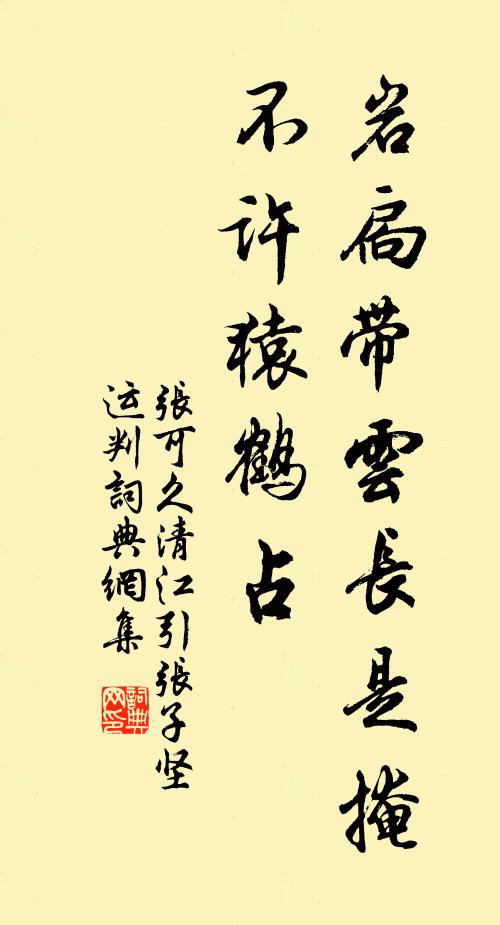 岩扃带雲長是掩
不许猿鹤占
張可久清江引張子坚
运判詞典網集
詞典网印